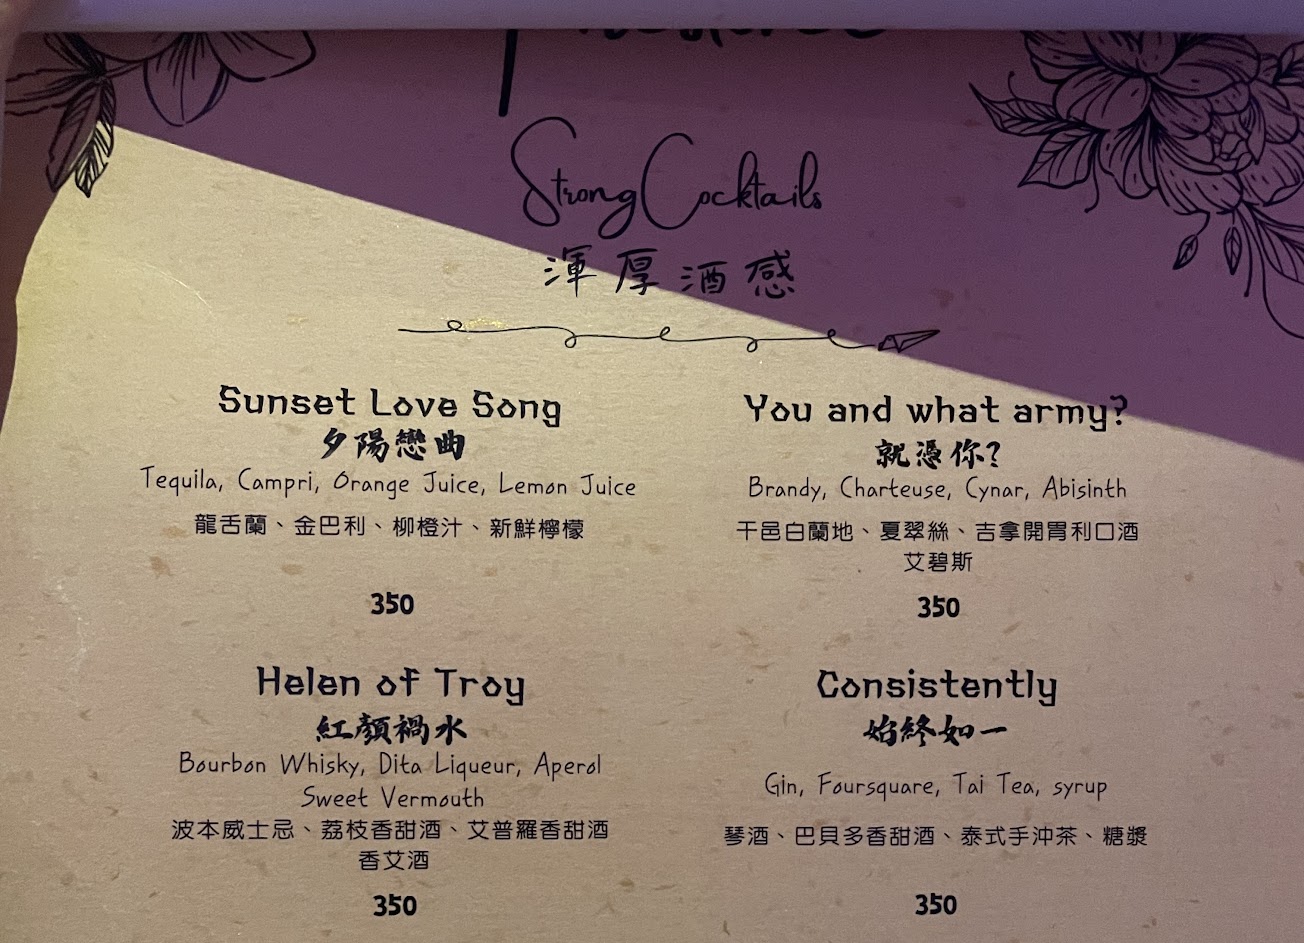 Strong Cocktails
渾厚酒感
Sunset Love Song
夕陽戀曲
Tequila, Campri, Orange Juice, Lemon Juice
龍舌蘭、金巴利、柳橙汁、新鮮檸檬
350
You and what army?
就憑你?
Brandy, Charteuse, Cynar, Abisinth
干邑白蘭地、夏翠絲、吉拿開胃利口酒
艾碧斯
350
Helen of Troy
紅顏禍水
Bourbon Whisky, Dita Liqueur, Aperol
Sweet Vermouth
波本威士忌、荔枝香甜酒、艾普羅香甜酒
香艾酒
350
Consistently
始終如一
Gin, Foursquare, Tai Tea, syrup
琴酒、巴貝多香甜酒、泰式手沖茶、糖漿
350